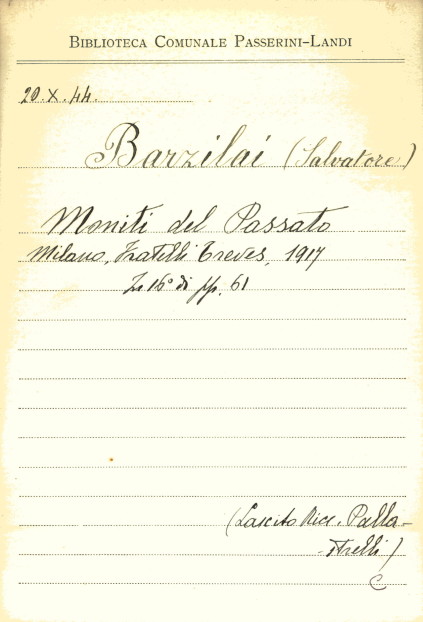 BIBLIOTECA COMUNALE PASSERINI-LANDI
20.X.44.
Barzilai (Salvatore)
Moniti del Passato
Milano, Fratelli Treves, 1917
In 16° di pp. 61
(Lascito Ricc. Palla-
-strelli)
C